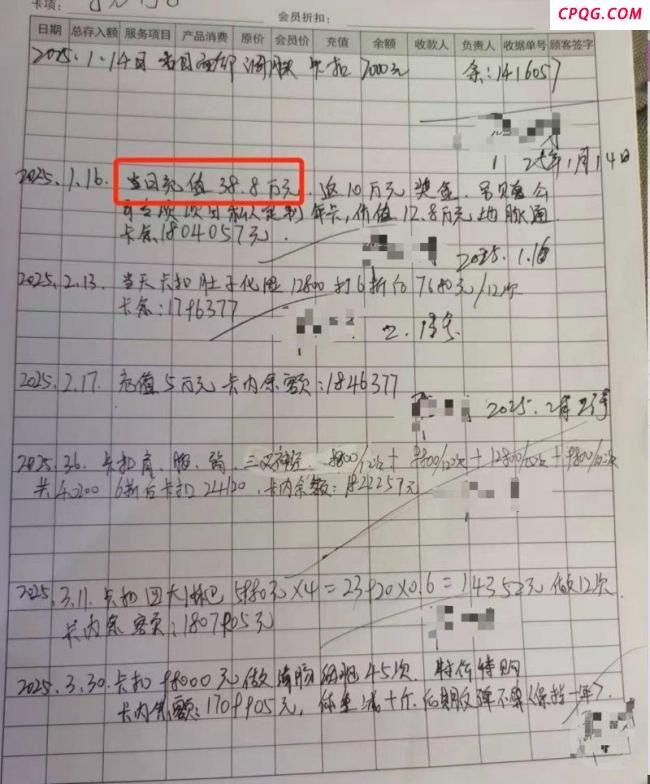 卡项:
会员折扣:
CPQG.COM
日期 总存入额 服务项目 产品消费 原价 会员价 充值 余额 收款人 负责人 收据单号 顾客签字
2025.1.14日 卡扣7000元 余:1416057
25年1月14日
2025.1.16. 当日充值38.8万元. 返10万元奖金.
年卡,价值12.8万元地脉通
卡余1804057元.
2025.1.16
2025.2.13. 当天卡扣肚子化湿12800打6折后7680元/12次
卡余:1796377
2.13号.
2025.2.17. 充值5万元 卡内余额:1846377
2025.2月23号
2025.3.6. 卡扣肩、腿、胸、三叉神经. 9800/12次+9800/12次+12800/12次+9800/12次
共40200 6折后卡扣24120.卡内余额:1822257元
2025.3.11.卡扣四大淋巴5980元×4=23920×0.6=14352元 做12次.
卡内余额:1807905元
2025.3.30.卡扣98000元做 45次. 特价特购
卡内余额:1709905元, 后期反弹不算(保持一年).